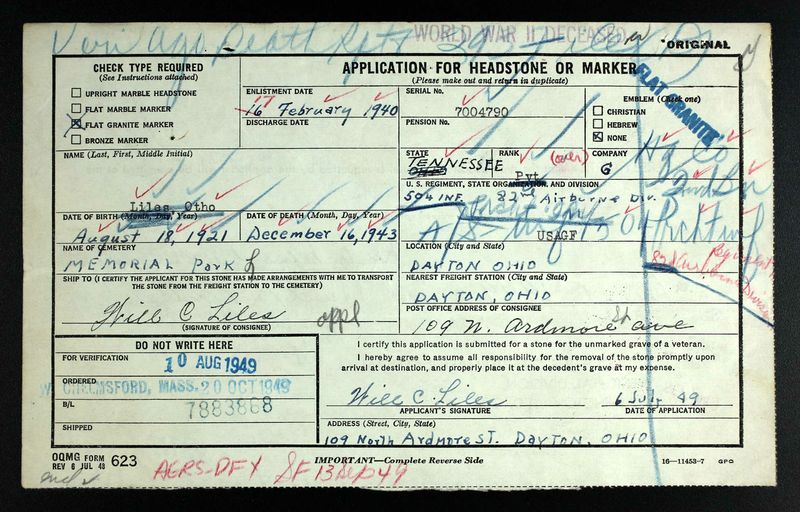 WORLD WAR II DECEASED
ORIGINAL
CHECK TYPE REQUIRED
(See Instructions attached)
UPRIGHT MARBLE HEADSTONE
FLAT MARBLE MARKER
FLAT GRANITE MARKER
BRONZE MARKER
APPLICATION FOR HEADSTONE OR MARKER
(Please make out and return in duplicate)
ENLISTMENT DATE
17
16 February 1940
DISCHARGE DATE
SERIAL No.
7004790
PENSION No.
EMBLEM (Check one)
CHRISTIAN
HEBREW
NONE
FLAT GRANITE
NAME (Last, First, Middle Initial)
Liles, Otho
STATE
TENNESSEE
OHIO
RANK
(over)
Pvt
COMPANY
G
Hq Co
2nd Bn
U. S. REGIMENT, STATE ORGANIZATION, AND DIVISION
504 INF. 82nd Airborne Div.
USAGF
504 Prcht Inf
DATE OF BIRTH (Month, Day, Year)
August 18, 1921
DATE OF DEATH (Month, Day, Year)
December 16, 1943
NAME OF CEMETERY
MEMORIAL Park
LOCATION (City and State)
DAYTON OHIO
SHIP TO (I CERTIFY THE APPLICANT FOR THIS STONE HAS MADE ARRANGEMENTS WITH ME TO TRANSPORT THE STONE FROM THE FREIGHT STATION TO THE CEMETERY)
Will C Liles
appl
(SIGNATURE OF CONSIGNEE)
NEAREST FREIGHT STATION (City and State)
DAYTON, OHIO
POST OFFICE ADDRESS OF CONSIGNEE
109 N. Ardmore St ave
DO NOT WRITE HERE
FOR VERIFICATION
10 AUG 1949
ORDERED
W. CHELMSFORD, MASS. 20 OCT 1949
B/L
7883868
SHIPPED
I certify this application is submitted for a stone for the unmarked grave of a veteran.
I hereby agree to assume all responsibility for the removal of the stone promptly upon arrival at destination, and properly place it at the decedent's grave at my expense.
Will C. Liles
6 July 49
APPLICANT'S SIGNATURE
DATE OF APPLICATION
ADDRESS (Street, City, State)
109 North Ardmore ST. DAYTON, OHIO
OQMG FORM 623
REV 6 JUL 48
IMPORTANT—Complete Reverse Side
16—11453-7 GPO
AGRS-DFY SF 13 Sep 49